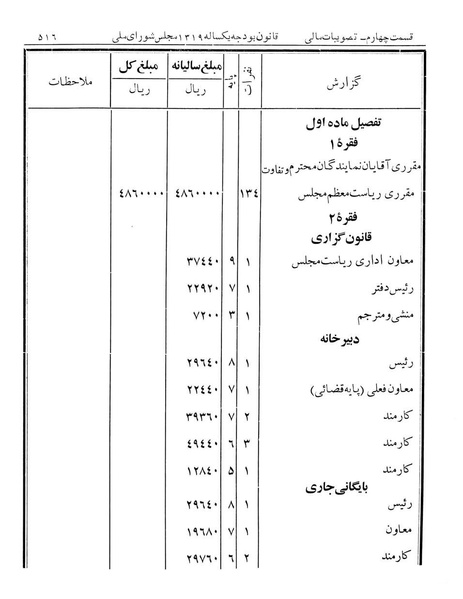 قسمت چهارم ـ تصویبات مالی قانون بودجه یکساله ۱۳۱۹ مجلس شورای ملی ۵۱۶
گزارش نفرات پایه مبلغ سالیانه ریال مبلغ کل ریال ملاحظات
تفصیل ماده اول
فقرهٔ ۱
مقرری آقایان نمایندگان محترم و تفاوت
مقرری ریاست معظم مجلس ۱۳٤ ٤۸٦۰۰۰۰ ٤۸٦۰۰۰۰
فقرهٔ ۲
قانون گزاری
معاون اداری ریاست مجلس ۱ ۹ ۳۷٤٤۰
رئیس دفتر ۱ ۷ ۲۲۹۲۰
منشی و مترجم ۱ ۳ ۷۲۰۰
دبیرخانه
رئیس ۱ ۸ ۲۹٦٤۰
معاون فعلی (پایه قضائی) ۱ ۷ ۲۲٤٤۰
کارمند ۲ ۷ ۳۹۳٦۰
کارمند ۳ ٦ ٤۹٤٤۰
کارمند ۱ ۵ ۱۲۸٤۰
بایگانی جاری
رئیس ۱ ۸ ۲۹٦٤۰
معاون ۱ ۷ ۱۹٦۸۰
کارمند ۲ ٦ ۲۹۷٦۰